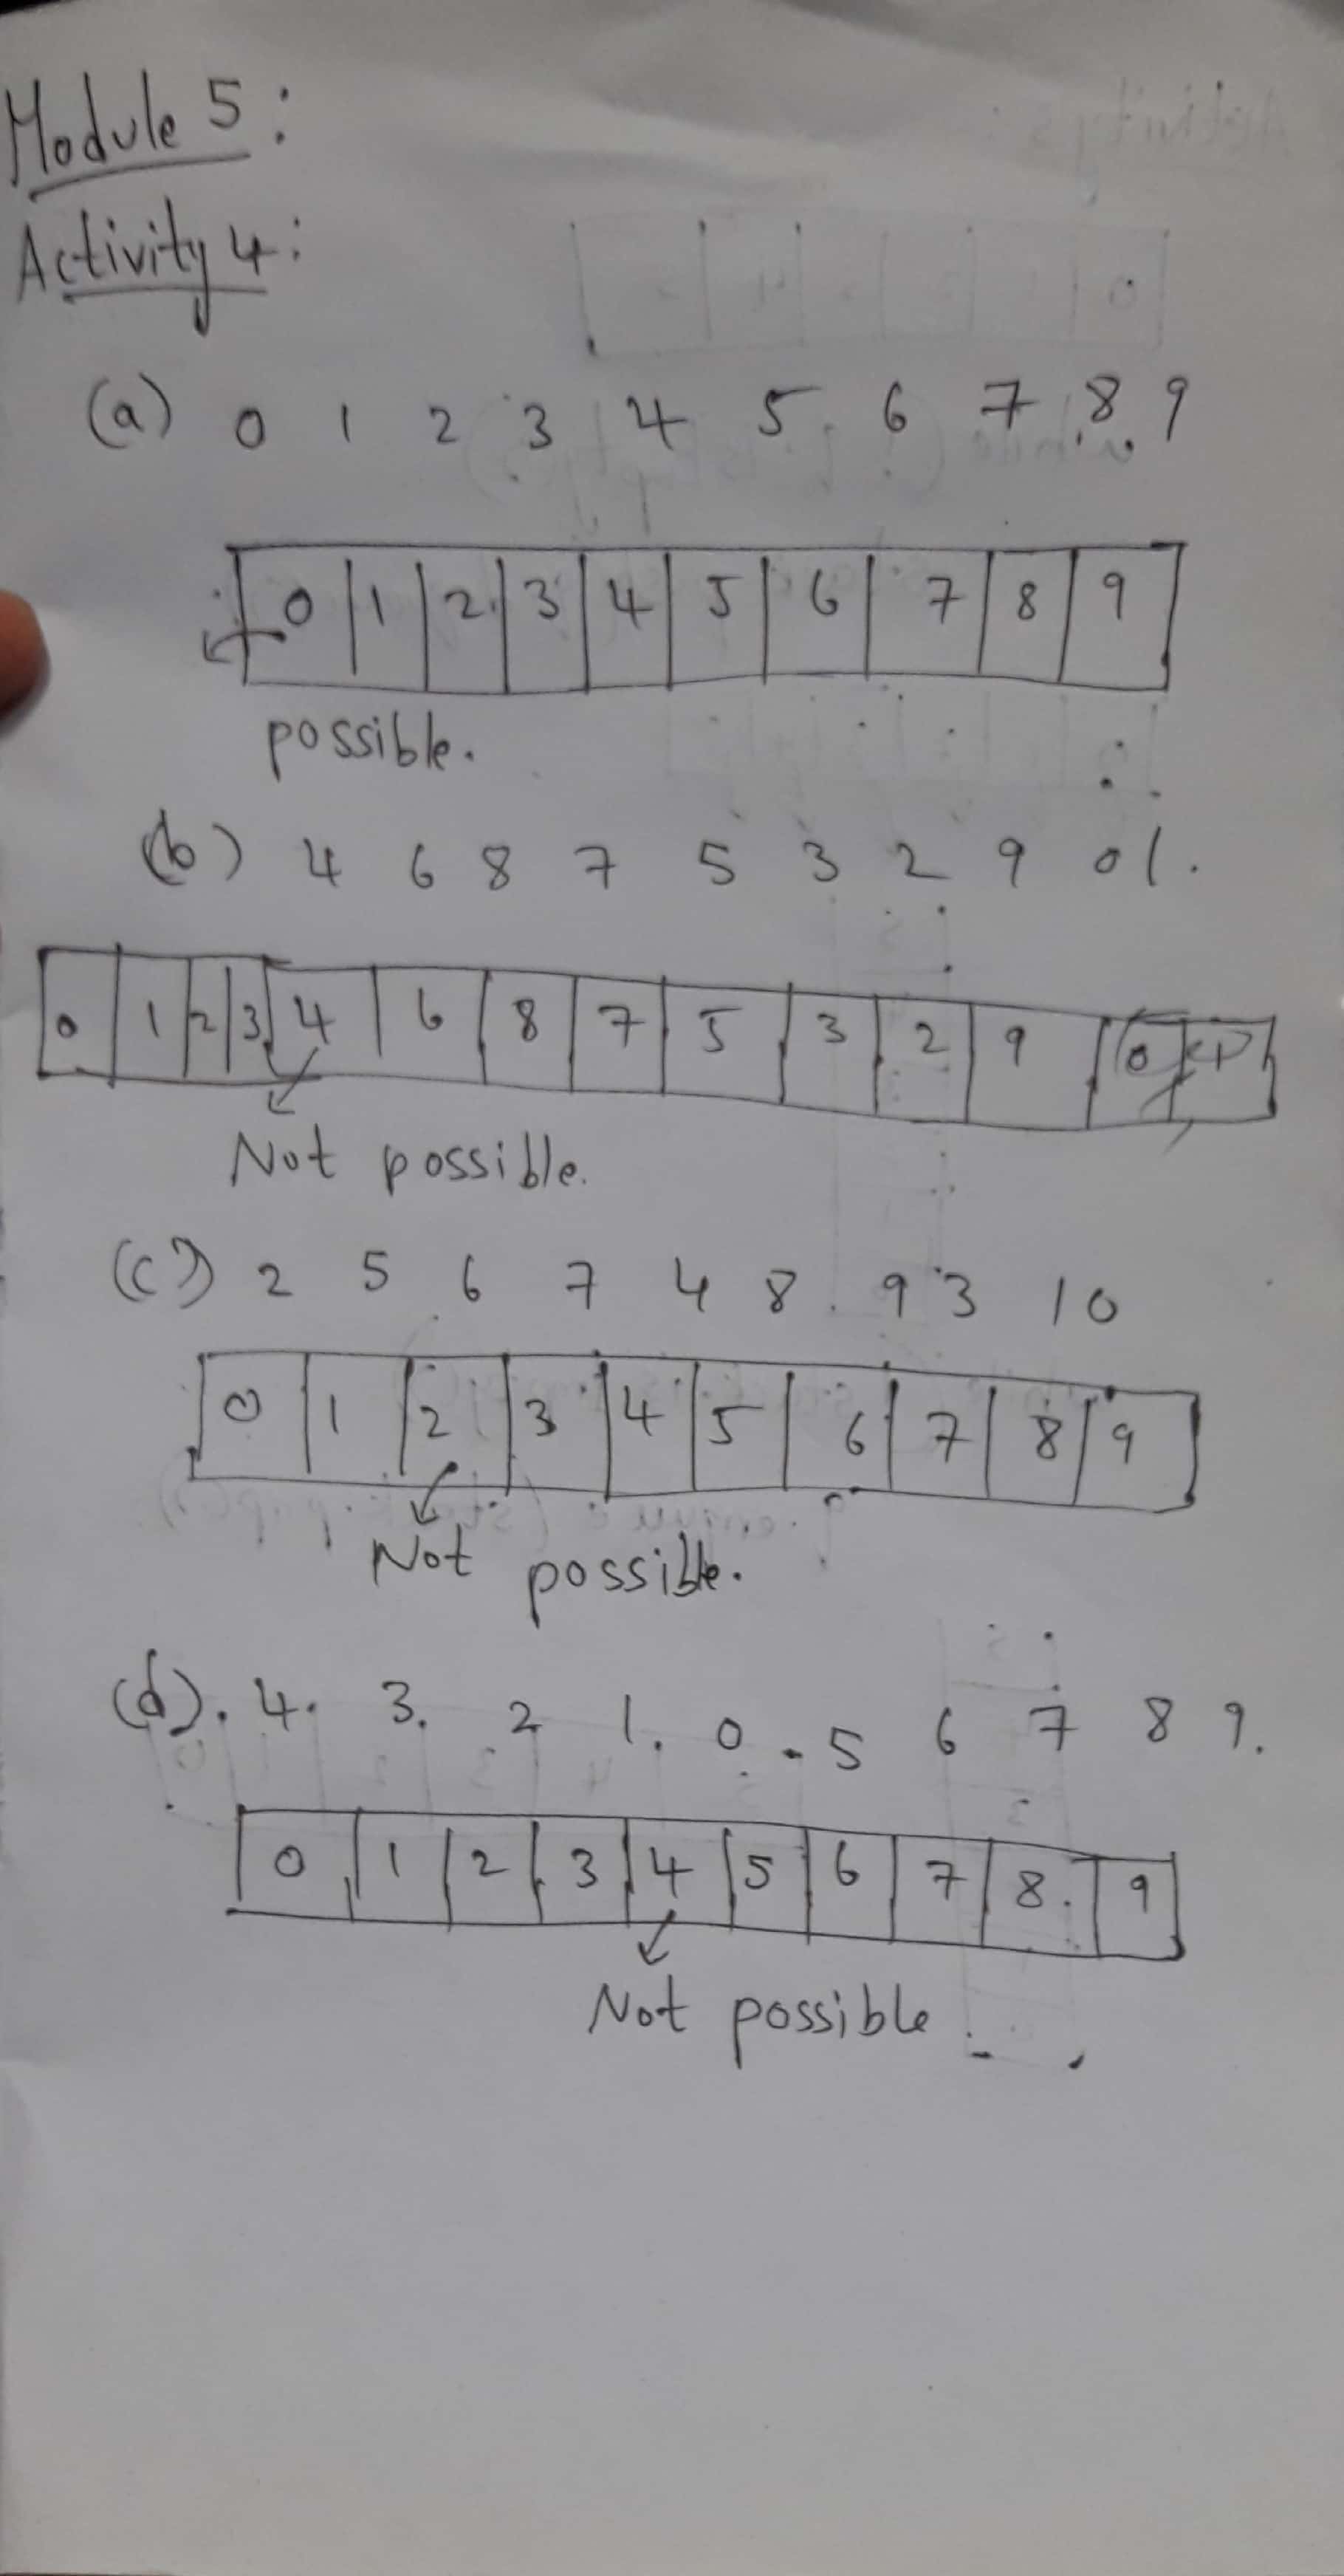 Module 5:
Activity 4:
(a) 0 1 2 3 4 5 6 7 8 9
0 1 2 3 4 5 6 7 8 9
possible.
(b) 4 6 8 7 5 3 2 9 0 1.
0 1 2 3 4 6 8 7 5 3 2 9 0
Not possible.
(c) 2 5 6 7 4 8 9 3 1 0
0 1 2 3 4 5 6 7 8 9
Not possible.
(d). 4. 3. 2 1. 0 5 6 7 8 9.
0 1 2 3 4 5 6 7 8. 9
Not possible.